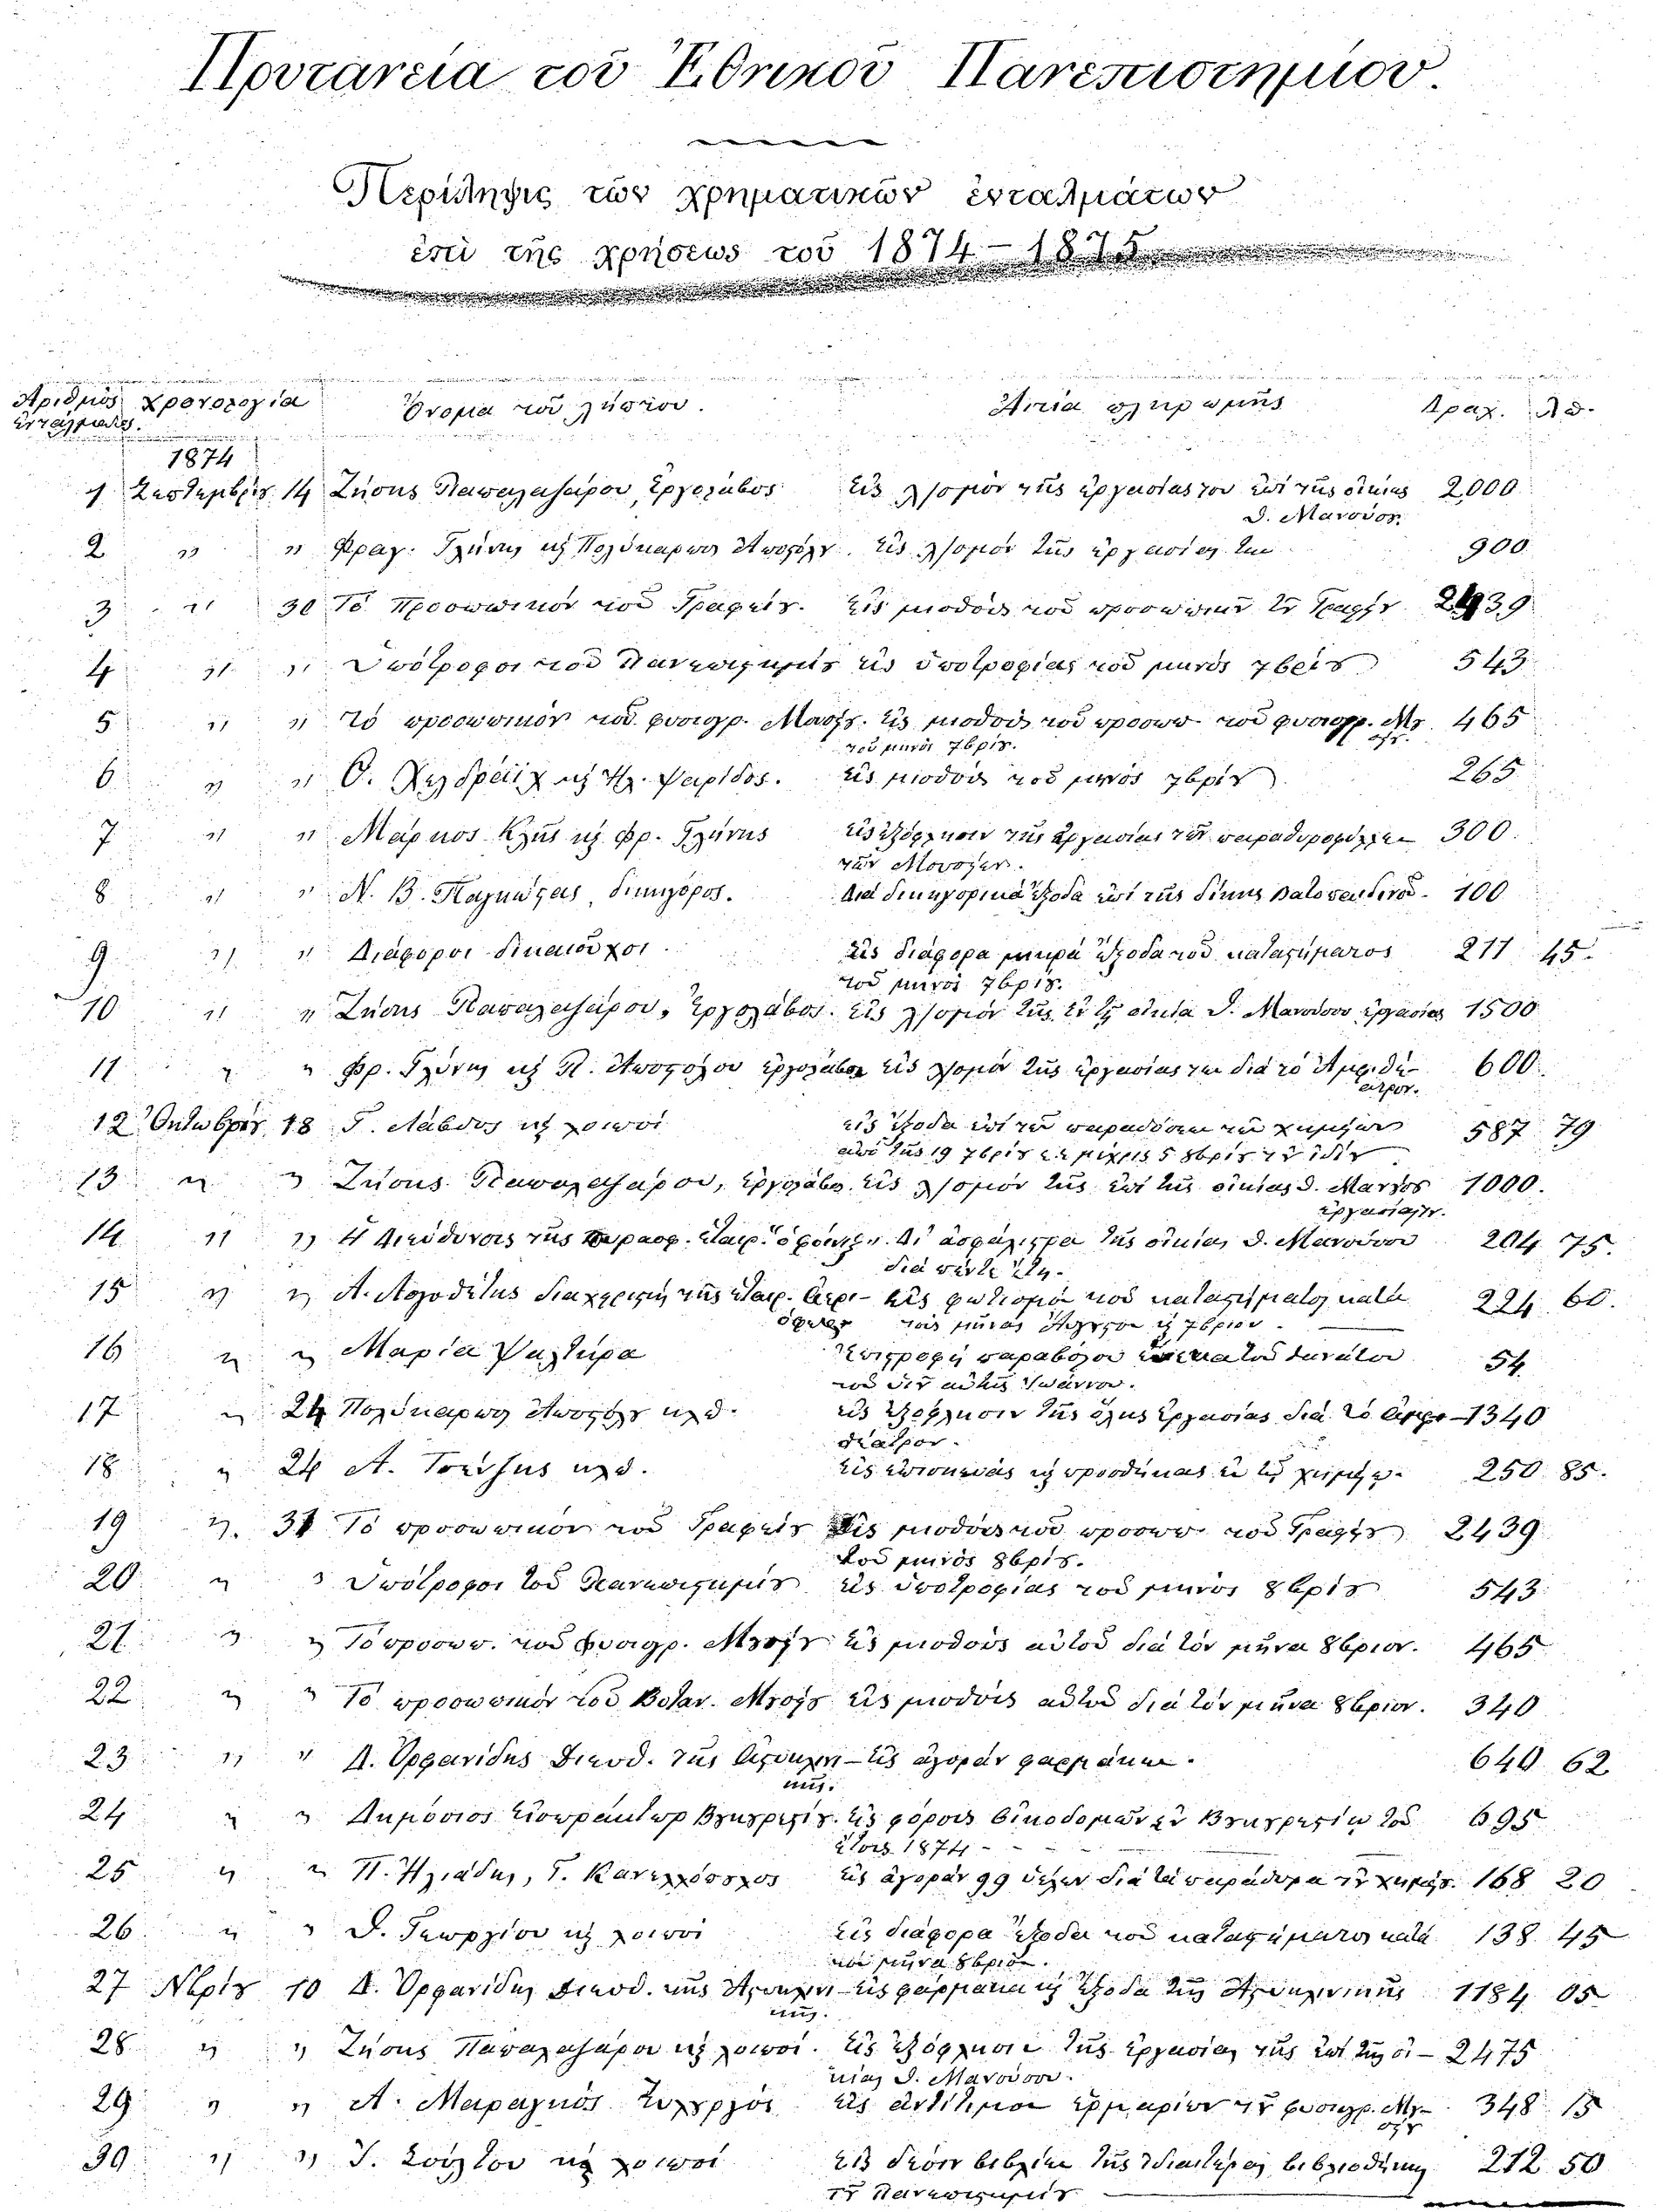 Πρυτανεία τοῦ Ἐθνικοῦ Πανεπιστημίου.
Περίληψις τῶν χρηματικῶν ἐνταλμάτων
ἐπὶ τῆς χρήσεως τοῦ 1874 - 1875
Ἀριθμὸς Χρονολογία Ὄνομα τοῦ λήπτου. Αἰτία πληρωμῆς Δραχ. Λεπ.
ἐντάλματος.
1874
1 Σεπτεμβρίου 14 Ζήσης Παπαλαζάρου, ἐργολάβος Εἰς λ/σμὸν τῆς ἐργασίας του ἐπὶ τῆς οἰκίας 2,000
Θ. Μανούσου.
2 " " Φραγ. Γλύνης κὴ Πολύκαρπος Ἀποστόλου. Εἰς λ/σμὸν τῆς ἐργασίας των 900
3 " 30 Τὸ Προσωπικὸν τοῦ Γραφείου. Εἰς μισθοὺς τοῦ προσωπικοῦ τοῦ Γραφείου 2439
4 " " Ὑπότροφοι τοῦ Πανεπιστημίου εἰς ὑποτροφίας τοῦ μηνὸς 7βρίου 543
5 " " Τὸ προσωπικὸν τοῦ φυσιογρ. Μουσείου. εἰς μισθοὺς τοῦ προσωπ. τοῦ φυσιογρ. Μου 465
τοῦ μηνὸς 7βρίου. σείου.
6 " " Θ. Χελδράϊχ κὴ Ἠλ. Ψαρίδος. εἰς μισθοὺς τοῦ μηνὸς 7βρίου 265
7 " " Μάρκος Κλῆς κὴ Φρ. Γλύνης εἰς ἐξόφλησιν τῆς ἐργασίας τῶν παραθυροφύλλων 300
τῶν Μουσείων.
8 " " Ν. Β. Παγκώστας, δικηγόρος. Διὰ δικηγορικὰ ἔξοδα ἐπὶ τῆς δίκης Βατοπεδινοῦ. 100
9 " " Διάφοροι δικαιοῦχοι εἰς διάφορα μικρὰ ἔξοδα τοῦ καταστήματος 211 45.
τοῦ μηνὸς 7βρίου.
10 " " Ζήσης Παπαλαζάρου, ἐργολάβος. εἰς λ/σμὸν τῆς ἐν τῇ οἰκίᾳ Θ. Μανούσου ἐργασίας 1500
11 " " Φρ. Γλύνης κὴ Π. Ἀποστόλου ἐργολάβοι εἰς λ/σμὸν τῆς ἐργασίας των διὰ τὸ Ἀμφιθέ- 600
ατρον.
12 Ὀκτωβρίου 18 Γ. Λάβδας κὴ λοιποὶ εἰς ἔξοδα ἐπὶ τῶν παραδόσεων τοῦ χημείου 587 79
ἀπὸ τῆς 19 7βρίου μέχρις 5 8βρίου τοῦ ἰδίου
13 " " Ζήσης Παπαλαζάρου, ἐργολάβος εἰς λ/σμὸν τῆς ἐπὶ τῆς οἰκίας Θ. Μανούσου 1000.
ἐργασίας του.
14 " " Ἡ Διεύθυνσις τῆς πυρασφ. ἑταιρ. ὁ φοίνιξ. Δι' ἀσφάλιστρα τῆς οἰκίας Θ. Μανούσου 204 75.
διὰ πέντε ἔτη.
15 " " Α. Λογοθέτης διαχειριστὴς τῆς ἑταιρ. ἀερι- εἰς φωτισμὸν τοῦ καταστήματος κατὰ 224 60.
όφωτος τοὺς μῆνας Αὔγουστον κὴ 7βριον.
16 " " Μαρία Ψαλτήρα Ἐπιστροφὴ παραβόλου ἕνεκα τοῦ θανάτου 54
τοῦ υἱοῦ αὐτῆς Ἰωάννου.
17 " 24 Πολύκαρπος Ἀποστόλου κλπ. εἰς ἐξόφλησιν τῆς ὅλης ἐργασίας διὰ τὸ ἀμφι- 1340
θέατρον.
18 " 24 Α. κλπ. εἰς ἐπισκευὰς κὴ προσθήκας ἐν τῷ χημείῳ. 250 85.
19 " 31 Τὸ προσωπικὸν τοῦ Γραφείου Εἰς μισθοὺς τοῦ προσωπ. τοῦ Γραφείου 2439
τοῦ μηνὸς 8βρίου.
20 " " Ὑπότροφοι τοῦ Πανεπιστημίου εἰς ὑποτροφίας τοῦ μηνὸς 8βρίου 543
21 " " Τὸ προσωπ. τοῦ φυσιογρ. Μουσείου εἰς μισθοὺς αὐτοῦ διὰ τὸν μῆνα 8βριον. 465
22 " " Τὸ προσωπικὸν τοῦ Βοταν. Μουσείου εἰς μισθοὺς αὐτοῦ διὰ τὸν μῆνα 8βριον. 340
23 " " Δ. Ὀρφανίδης Διευθ. τῆς Ἀστυκλινι- εἰς ἀγορὰν φαρμάκων. 640 62
κῆς.
24 " " Δημόσιος Εἰσπράκτωρ εἰς φόρους οἰκοδομῶν ἐν τοῦ 695
ἔτους 1874
25 " " Π. Ἠλιάδης, Γ. Κανελλόπουλος εἰς ἀγορὰν 99 ὑέλων διὰ τὰ παράθυρα τοῦ χημείου. 168 20
26 " " Θ. Γεωργίου κὴ λοιποὶ εἰς διάφορα ἔξοδα τοῦ καταστήματος κατὰ 138 45
τὸν μῆνα 8βριον.
27 Νβρίου 10 Δ. Ὀρφανίδης Διευθ. τῆς Ἀστυκλινι- εἰς φάρμακα κὴ ἔξοδα τῆς Ἀστυκλινικῆς 1184 05
κῆς.
28 " " Ζήσης Παπαλαζάρου κὴ λοιποί. εἰς ἐξόφλησιν τῆς ἐργασίας τῆς ἐπὶ τῆς οἰ- 2475
κίας Θ. Μανούσου.
29 " " Α. Μαραγκὸς ξυλουργός εἰς ἀντίτιμον ἑρμαρίων τοῦ φυσιογρ. Μου- 348 15
σείου
30 " " Γ. Σούλτου κὴ λοιποί εἰς δέσιν βιβλίων τῆς ἰδιαιτέρας βιβλιοθήκης 212 50
τοῦ Πανεπιστημίου